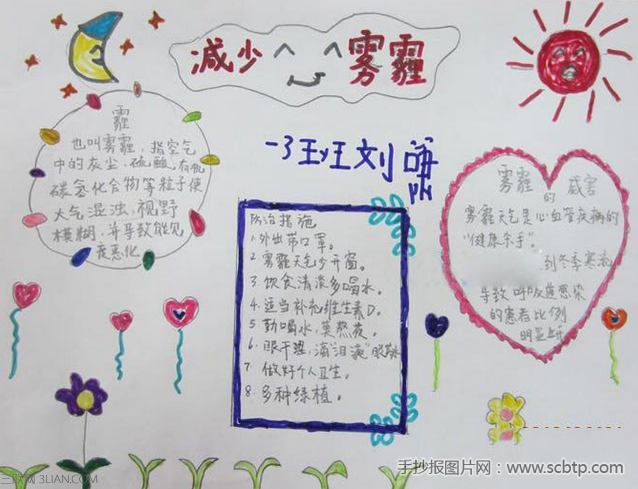 减少 雾霾
一3班 刘
霾
也叫雾霾，指空气
中的灰尘、硫酸、有机
碳氢化合物等粒子使
大气混浊，视野
模糊，并导致能见
度恶化
防治措施
1. 外出带口罩。
2. 雾霾天气少开窗。
3 饮食清淡多喝水。
4. 适当补充维生素D。
5 勤喝水，莫熬夜。
6. 眼干涩，滴“泪液”眼
7 做好个人卫生。
8. 多种绿植。
雾霾 的 威害
雾霾天气是心血管疾病的
“健康杀手”。
到冬季寒流
导致呼吸道感染
的患者比例
明显上升
三联网 3LIAN.COM
手抄报图片网：www.scbtp.com